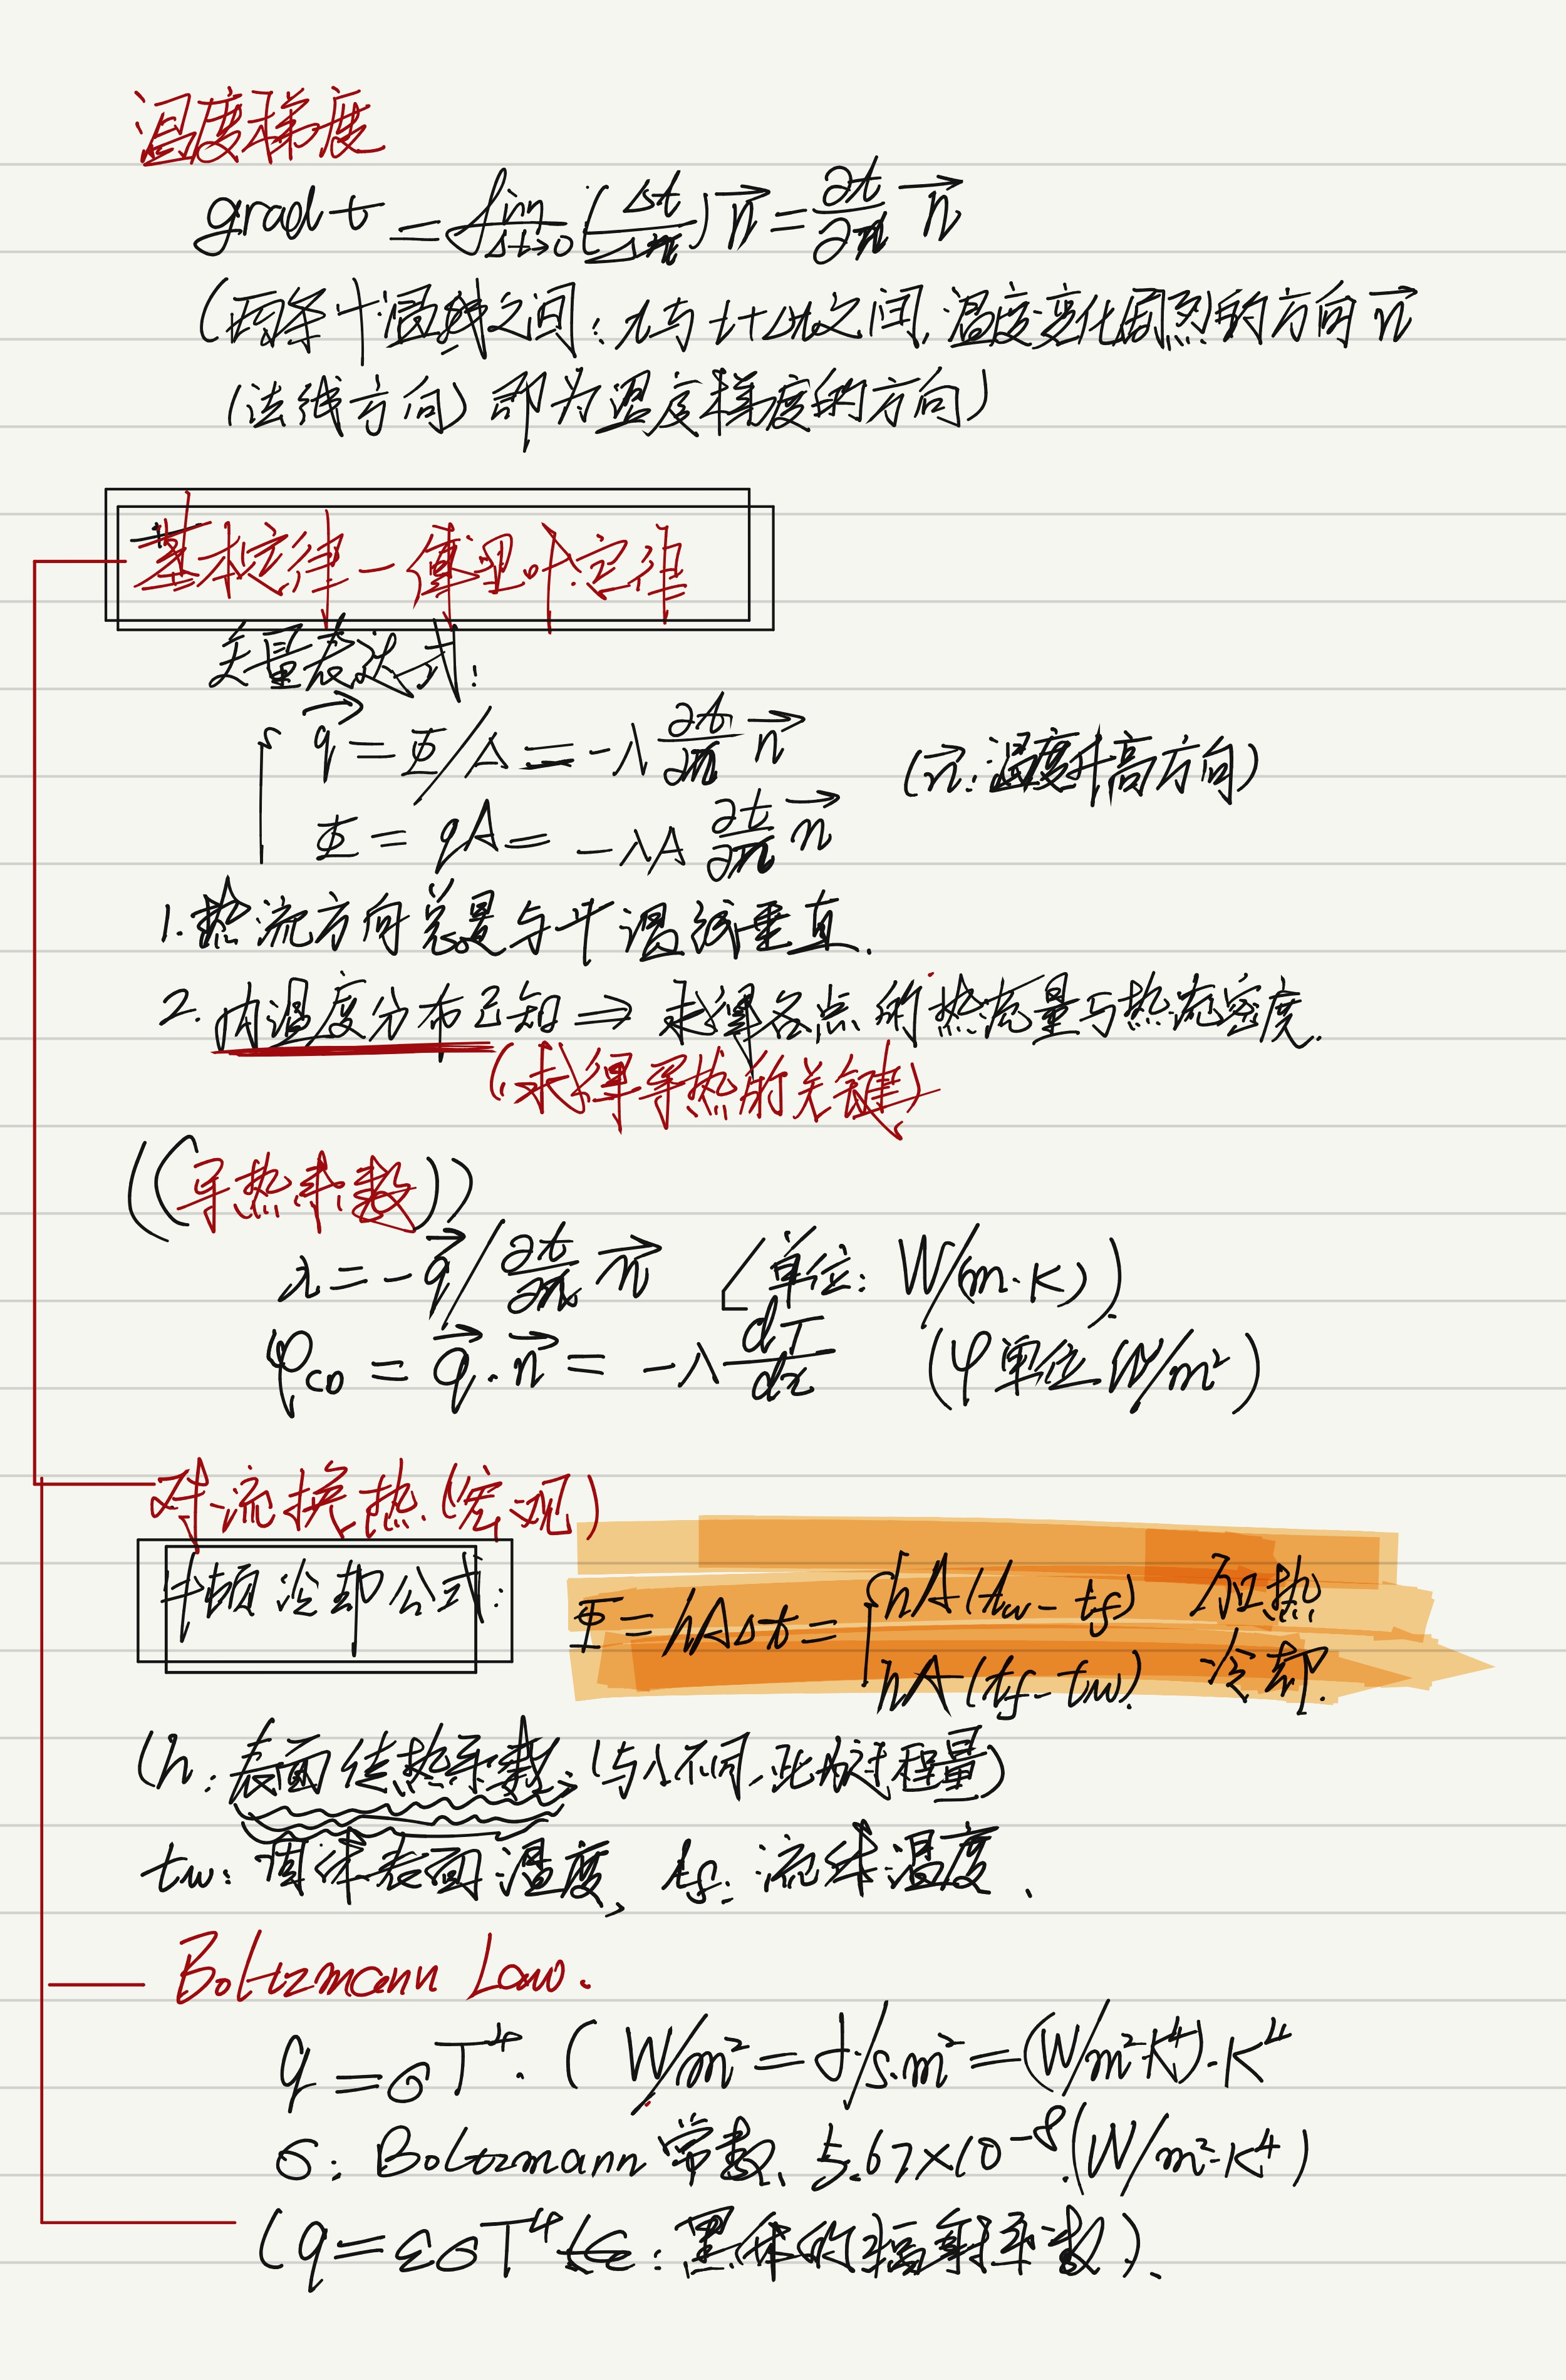 温度梯度
grad t = lim Δt→0 (Δt/Δn) n⃗ = ∂t/∂n n⃗
(两条十温线之间: t与t+Δt之间, 温度变化剧烈的方向 n⃗
(法线方向) 即为温度梯度的方向)
基本定律-傅里叶定律
矢量表达式:
q⃗ = Φ/A = -λ ∂t/∂n n⃗ (n⃗: 温度升高方向)
Φ = qA = -λA ∂t/∂n n⃗
1. 热流方向总是与十温线垂直.
2. 内温度分布已知 ⇒ 求得各点的热流量与热流密度.
(求得导热的关键)
((导热系数))
λ = -q⃗/∂t/∂n n⃗ (单位: W/(m·K))
φcD = q⃗·n⃗ = -λ dT/dx (φ单位 W/m²)
对流换热 (宏观)
牛顿冷却公式: Φ = hAΔt = { hA(tw - tf) 加热
hA(tf - tw) 冷却.
(h: 表面传热系数, (与λ不同, 此为过程量)
tw: 固体表面温度, tf: 流体温度.
Boltzmann Law.
q = σT⁴. ( W/m² = J/s·m² = (W/m²·K⁴)·K⁴
σ: Boltzmann 常数, 5.67×10⁻⁸ (W/m²·K⁴)
(q = εσT⁴ (ε: 黑体的辐射系数).